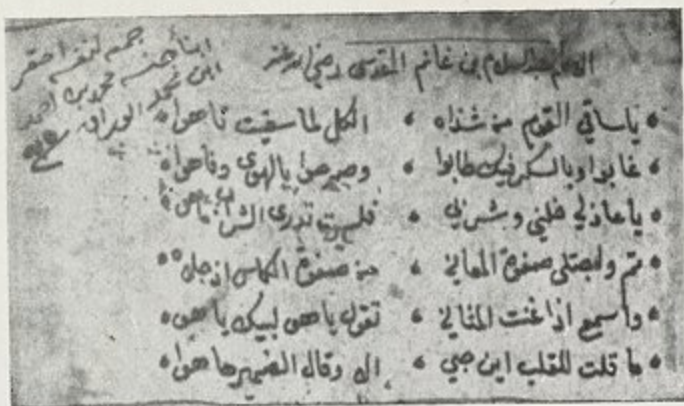 عبد السلام بن غانم المقدسي رضي الله عنه
محمد بن احمد
يا ساقي القوم من شذاه الكل لما سقيت تاهوا
غابوا وبالسكر فيك طابوا وصرحوا بالهوى وفاهوا
يا عاذلي خلني وشربي فلست تدري الشراب ما هوا
قم واجتلي صفوة المعاني من صفوة الكاس اذ جلاه
واسمع اذا غنت المثاني تقول يا هو لبيك يا هو
ما قلت للقلب اين حبي الا وقال الضمير ها هوا